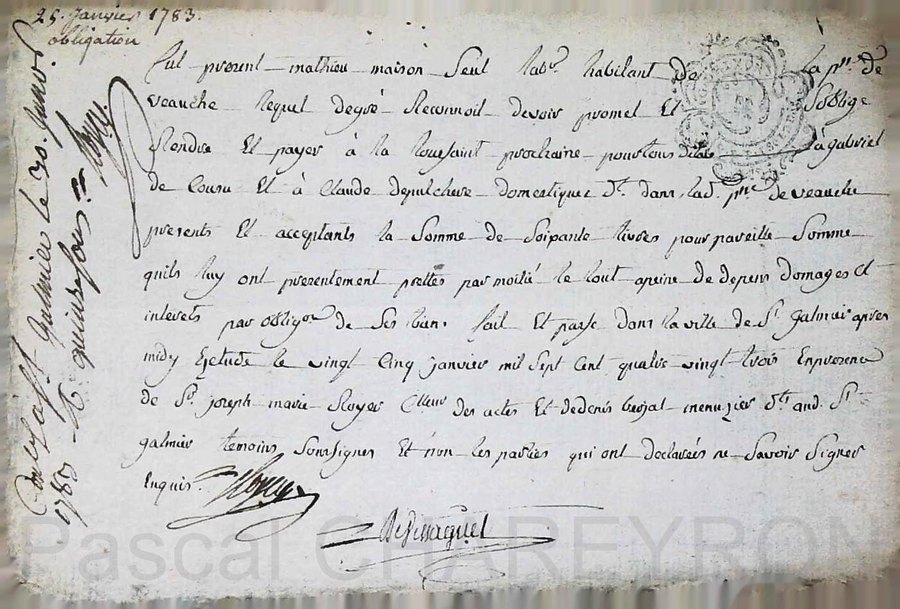 25. Janvier 1783.
obligation
Fut present mathieu maison Seul hab.r habitant de la p.sse de
veauche lequel degré Reconnoit devoir promet Et Soblige
Rendre Et payer à la toussaint prochaine pourtous delais à gabriel
de Cousu Et à Claude depulchere domestiques dt. dans lad. p.sse de veauche
presents Et acceptants la Somme de Soixante livres pour pareille Somme
quils luy ont presentement prettés par moitié le tout apeine de depens domages Et
interets par oblig.on de Ses biens fait Et passé dans la ville de St. galmier apres
midy Etude le vingt Cinq janvier mil Sept Cent quatre vingt trois Enpresence
de Sr. joseph marie Royer Clerc des actes Et de denis menuzier dt. aud. St.
galmier temoins Soussignes Et non les parties qui ont declarées ne Savoir Signer
Enquis.
Royer
Con.lé à St. Galmier le 30. Janv.
1783 R. quinze sous
Pascal CHAREYRON